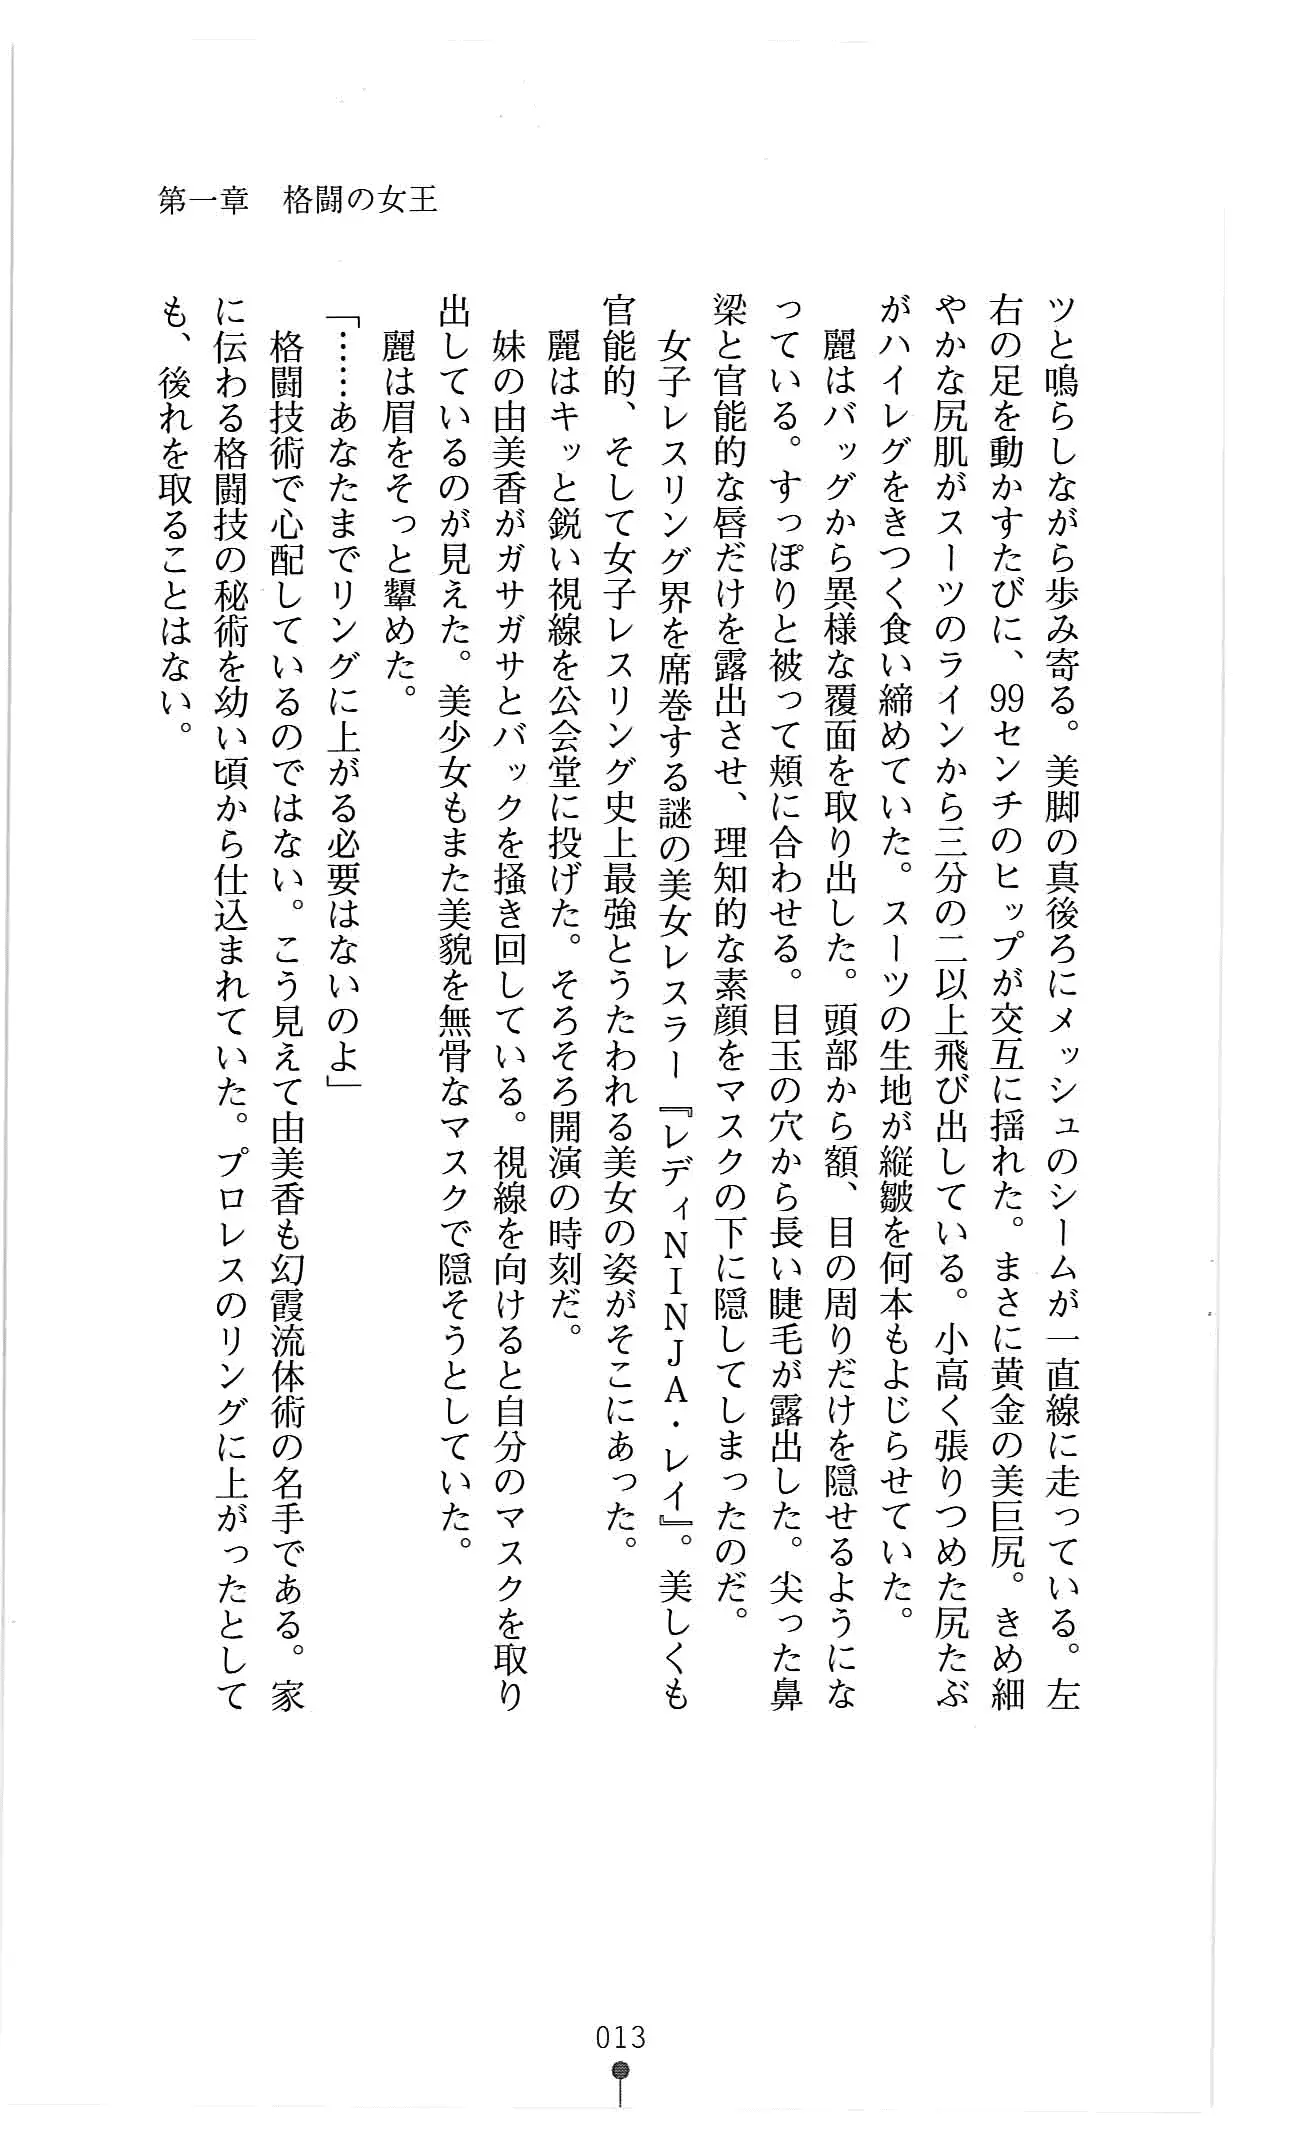 第一章　格闘の女王
ツと鳴らしながら歩み寄る。美脚の真後ろにメッシュのシームが一直線に走っている。左
右の足を動かすたびに、99センチのヒップが交互に揺れた。まさに黄金の美巨尻。きめ細
やかな尻肌がスーツのラインから三分の二以上飛び出している。小高く張りつめた尻たぶ
がハイレグをきつく食い締めていた。スーツの生地が縦皺を何本もよじらせていた。
　麗はバッグから異様な覆面を取り出した。頭部から額、目の周りだけを隠せるようにな
っている。すっぽりと被って頬に合わせる。目玉の穴から長い睫毛が露出した。尖った鼻
梁と官能的な唇だけを露出させ、理知的な素顔をマスクの下に隠してしまったのだ。
　女子レスリング界を席巻する謎の美女レスラー『レディNINJA・レイ』。美しくも
官能的、そして女子レスリング史上最強とうたわれる美女の姿がそこにあった。
　麗はキッと鋭い視線を公会堂に投げた。そろそろ開演の時刻だ。
　妹の由美香がガサガサとバックを掻き回している。視線を向けると自分のマスクを取り
出しているのが見えた。美少女もまた美貌を無骨なマスクで隠そうとしていた。
　麗は眉をそっと顰めた。
「……あなたまでリングに上がる必要はないのよ」
　格闘技術で心配しているのではない。こう見えて由美香も幻霞流体術の名手である。家
に伝わる格闘技の秘術を幼い頃から仕込まれていた。プロレスのリングに上がったとして
も、後れを取ることはない。
013